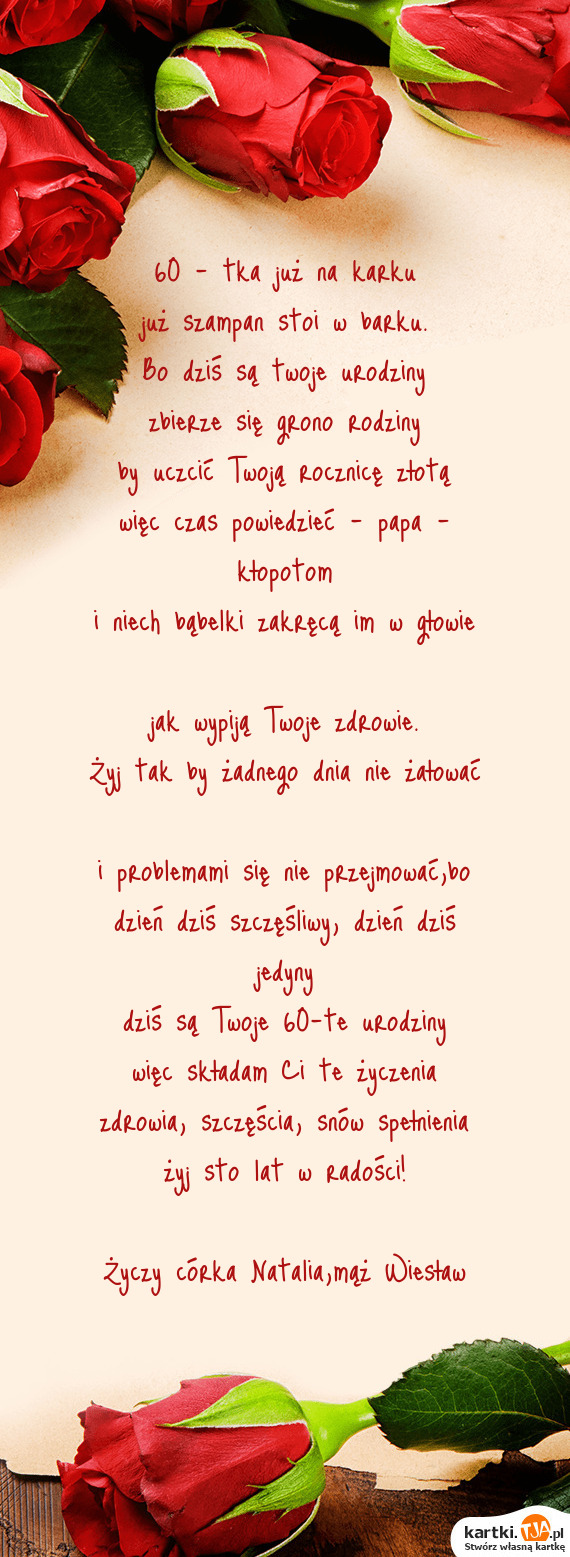 60 - tka już na karku
już szampan stoi w barku.
Bo dziś są twoje urodziny
zbierze się grono rodziny
by uczcić Twoją rocznicę złotą
więc czas powiedzieć - papa -
kłopotom
i niech bąbelki zakręcą im w głowie
jak wypiją Twoje zdrowie.
Żyj tak by żadnego dnia nie żałować
i problemami się nie przejmować,bo
dzień dziś szczęśliwy, dzień dziś
jedyny
dziś są Twoje 60-te urodziny
więc składam Ci te życzenia
zdrowia, szczęścia, snów spełnienia
żyj sto lat w radości!
Życzy córka Natalia,mąż Wiesław
kartki.TJA.pl
Stwórz własną kartkę